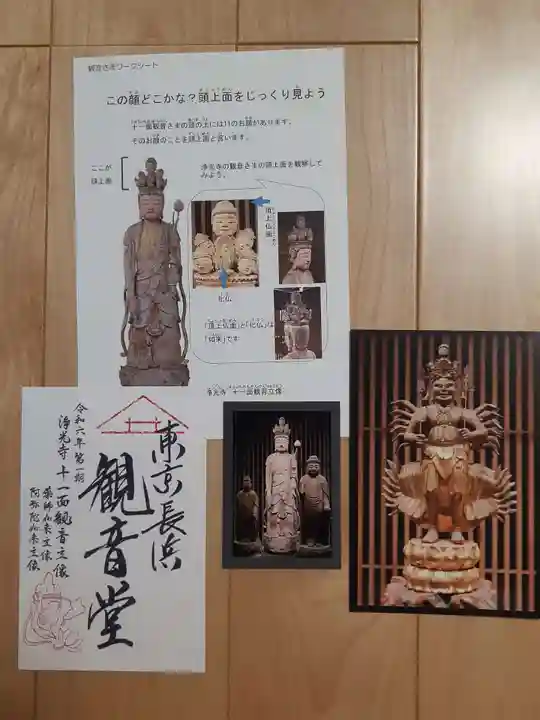 観音さまワークシート
この顔どこかな？頭上面をじっくり見よう
十一面観音さまの頭の上には11のお顔があります。
そのお顔のことを頭上面と言います。
ここが
頭上面
浄光寺の観音さまの頭上面を観察して
みよう。
頂上仏面
化仏
「頂上仏面」と「化仏」は
「如来」です
浄光寺 十一面観音立像
東京長浜
観音堂
令和六年 第一期
浄光寺 十一面観音立像
薬師如来立像
阿弥陀如来立像